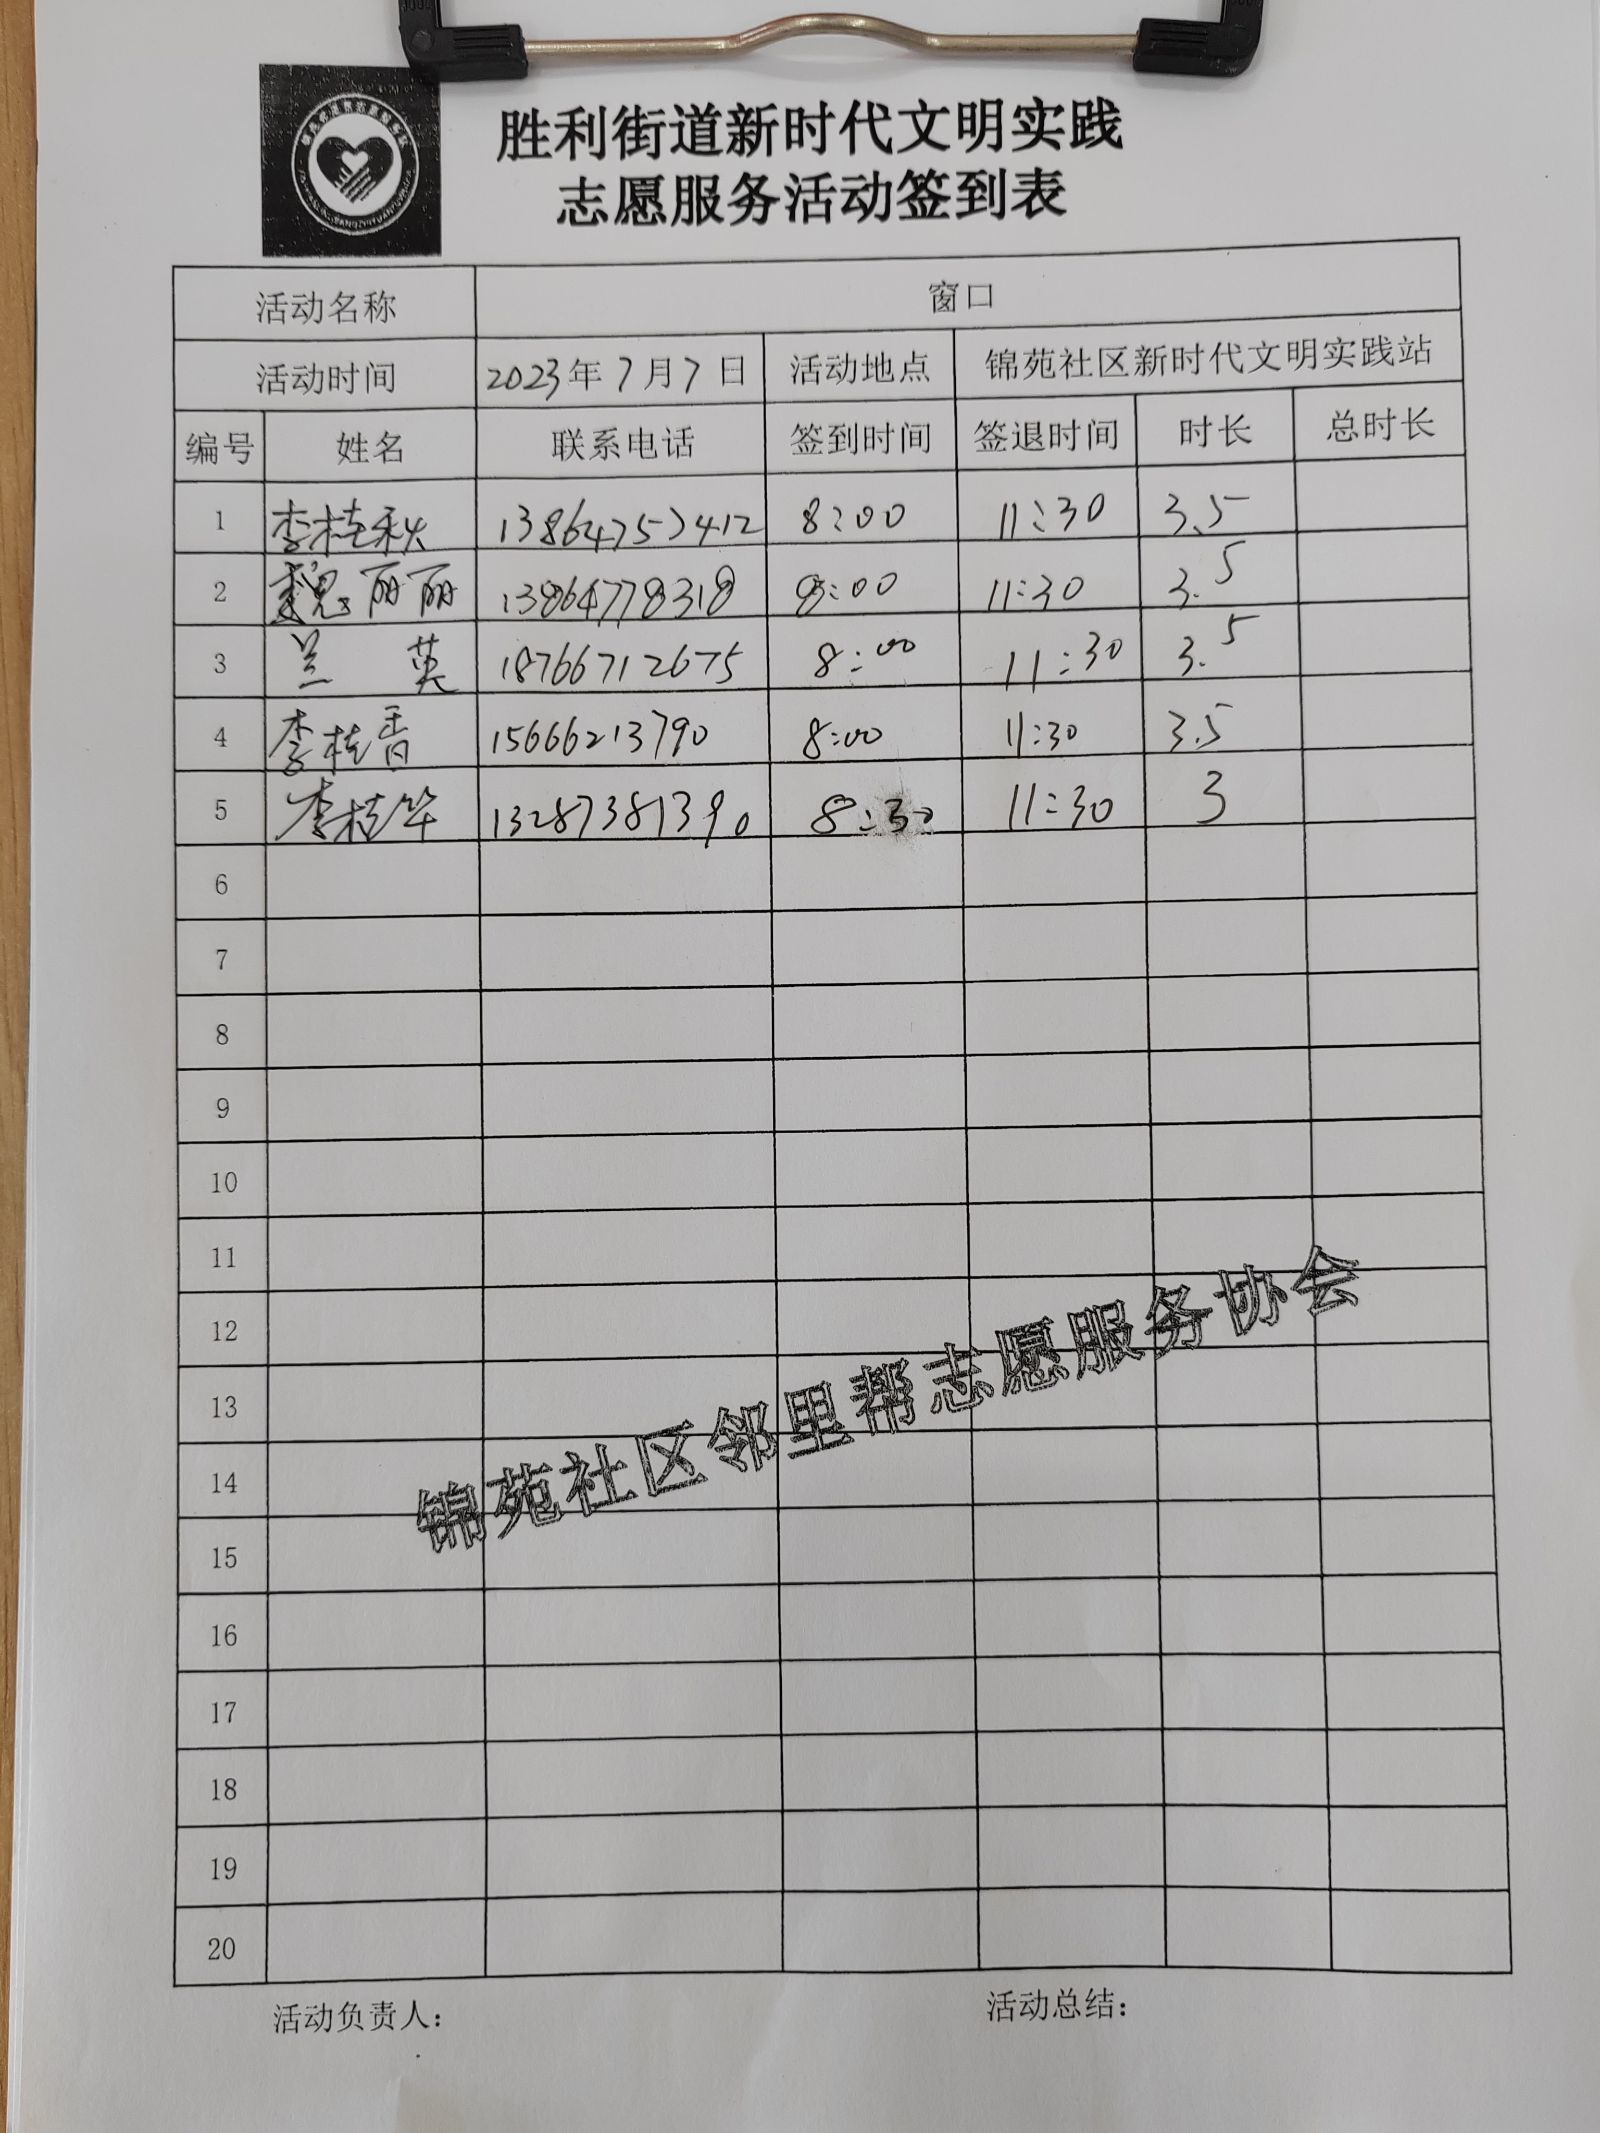 胜利街道新时代文明实践
志愿服务活动签到表
活动名称 窗口
活动时间 2023年7月7日 活动地点 锦苑社区新时代文明实践站
编号 姓名 联系电话 签到时间 签退时间 时长 总时长
1 李桂秋 13864757412 8:00 11:30 3.5
2 魏丽丽 13864778318 8:00 11:30 3.5
3 兰英 18766712675 8:00 11:30 3.5
4 李桂香 15666213790 8:00 11:30 3.5
5 李桂华 13287381390 8:30 11:30 3
6
7
8
9
10
11
12
13
14
15
16
17
18
19
20
锦苑社区邻里帮志愿服务协会
活动负责人: 活动总结: